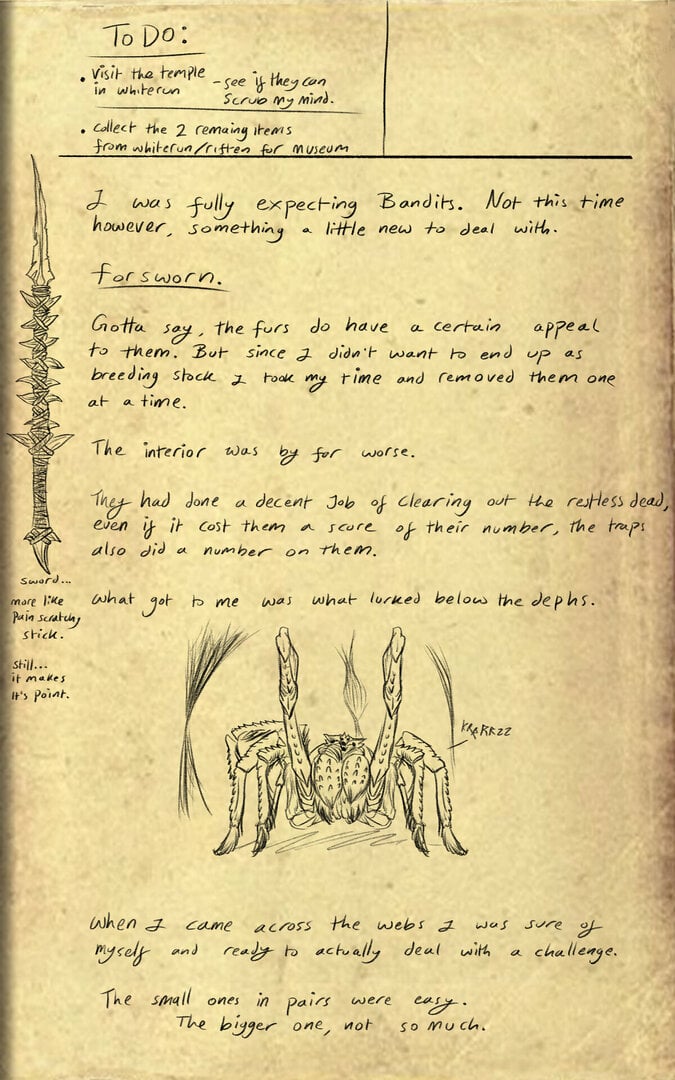 To Do:
• Visit the temple
in whiterun
- see if they can
Scrub my mind.
• collect the 2 remaing items
from whiterun/riften for museum
I was fully expecting Bandits. Not this time
however, something a little new to deal with.
forsworn.
Gotta say, the furs do have a certain appeal
to them. But since I didn't want to end up as
breeding stock I took my time and removed them one
at a time.
The interior was by far worse.
They had done a decent Job of clearing out the restless dead,
even if it cost them a score of their number, the traps
also did a number on them.
Sword...
more like
Pain scratchy
stick.
Still...
it makes
It's point.
What got to me was what lurked below the dephs.
KRARRZZ
When I came across the webs I was sure of
myself and ready to actually deal with a challenge.
The small ones in pairs were easy.
The bigger one, not so much.